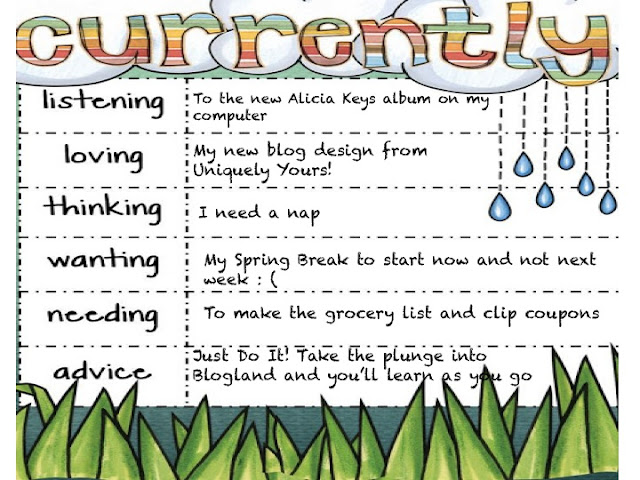 currently
listening
To the new Alicia Keys album on my
computer
loving
My new blog design from
Uniquely Yours!
thinking
I need a nap
wanting
My Spring Break to start now and not next
week : (
needing
To make the grocery list and clip coupons
advice
Just Do It! Take the plunge into
Blogland and you'll learn as you go